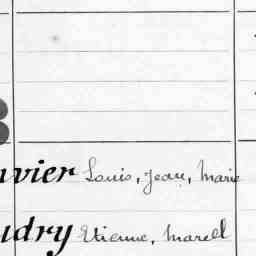 vier Louis, Jean, Marie
udry Etienne, Marcel